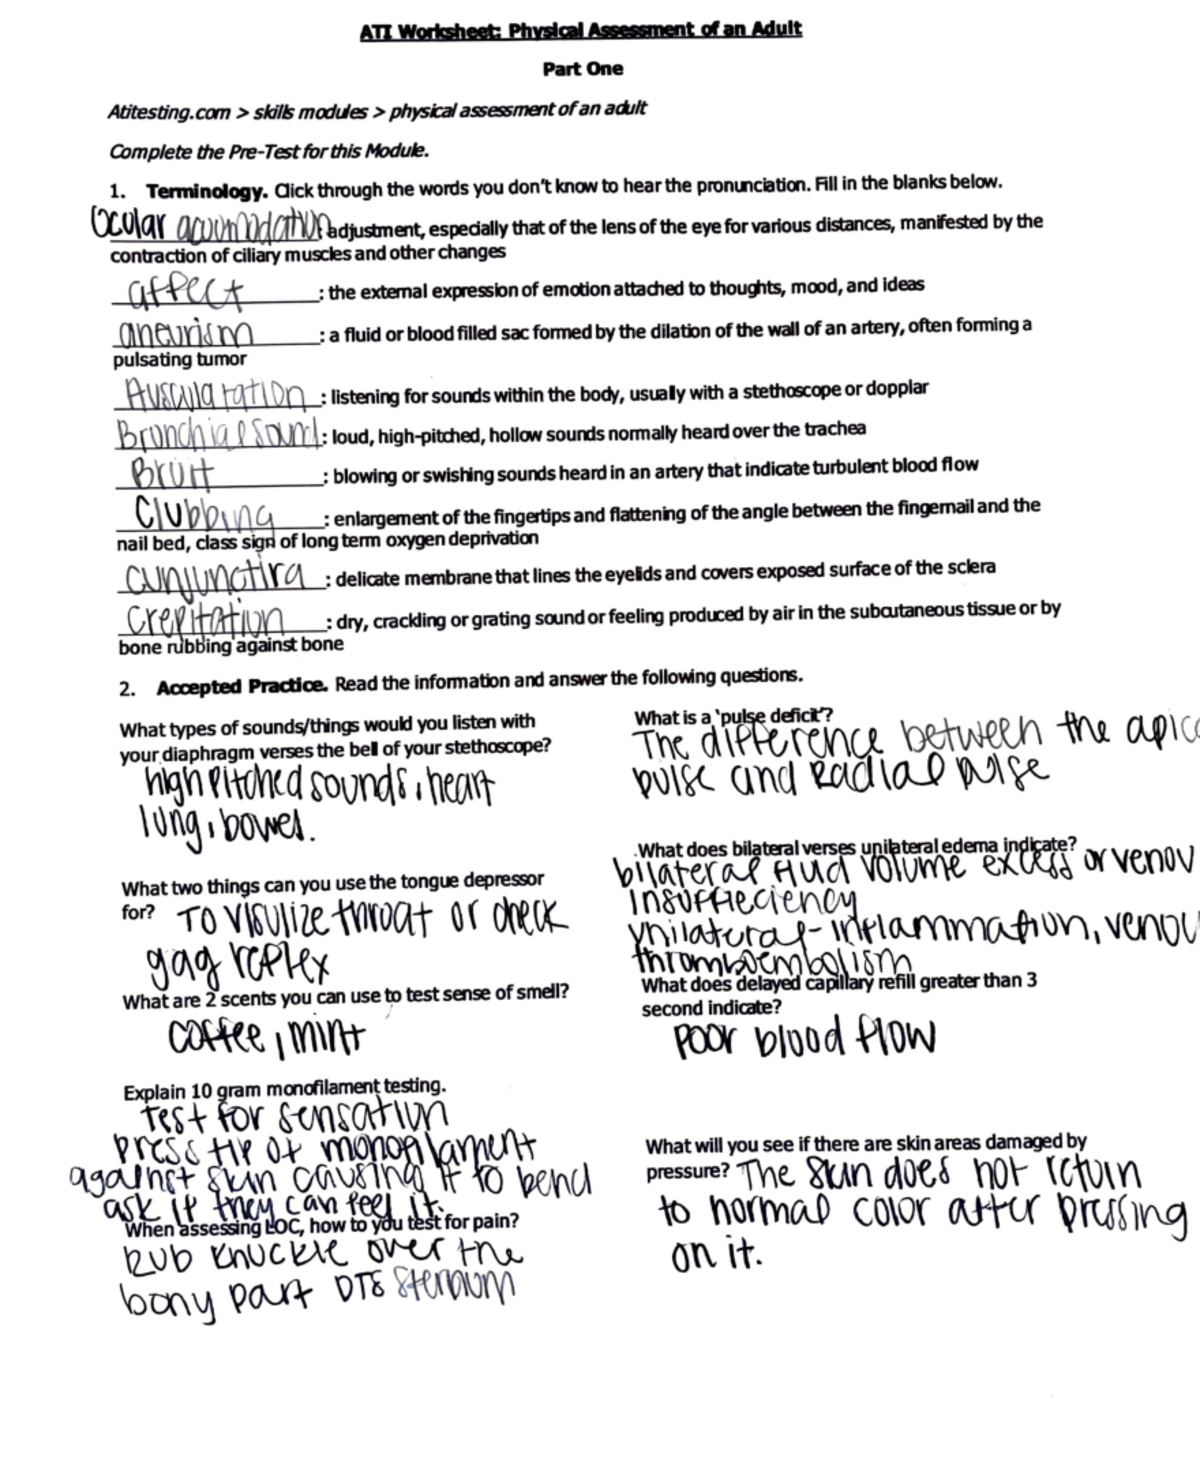 ATI Worksheet: Physical Assessment of an Adult
Part One
Atitesting.com > skills modules > physical assessment of an adult
Complete the Pre-Test for this Module.
1. Terminology. Click through the words you don't know to hear the pronunciation. Fill in the blanks below.
Ocular acuomodation: adjustment, especially that of the lens of the eye for various distances, manifested by the
contraction of ciliary muscles and other changes
affect: the external expression of emotion attached to thoughts, mood, and ideas
aneurism: a fluid or blood filled sac formed by the dilation of the wall of an artery, often forming a
pulsating tumor
Ausculatation: listening for sounds within the body, usually with a stethoscope or dopplar
Bronchial sound: loud, high-pitched, hollow sounds normally heard over the trachea
Bruit: blowing or swishing sounds heard in an artery that indicate turbulent blood flow
Clubbing: enlargement of the fingertips and flattening of the angle between the fingernail and the
nail bed, class sign of long term oxygen deprivation
cunjunctiva: delicate membrane that lines the eyelids and covers exposed surface of the sclera
crepitation: dry, crackling or grating sound or feeling produced by air in the subcutaneous tissue or by
bone rubbing against bone
2. Accepted Practice. Read the information and answer the following questions.
What types of sounds/things would you listen with
your diaphragm verses the bell of your stethoscope?
high pitched sounds, heart
lung, bowel.
What two things can you use the tongue depressor
for? To visulize throat or check
gag reflex
What are 2 scents you can use to test sense of smell?
coffee, mint
Explain 10 gram monofilament testing.
test for sensation
press tip of monofilament
against skin causing it to bend
ask if they can feel it.
When assessing LOC, how to you test for pain?
Rub knuckle over the
bony part sternum
What is a 'pulse deficit'?
The difference between the apica
pulse and Radial pulse
What does bilateral verses unilateral edema indicate?
bilateral fluid volume excess or venov
insuffieciency
unilateral-inflammation, venou
thromboembolism
What does delayed capillary refill greater than 3
second indicate?
poor blood flow
What will you see if there are skin areas damaged by
pressure? The skin does not return
to normal color after pressing
on it.